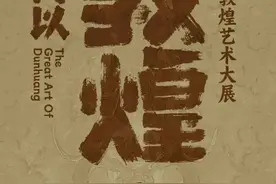 敦煌艺术大展
敦煌
以
The
Great Art Of
Dunhuang